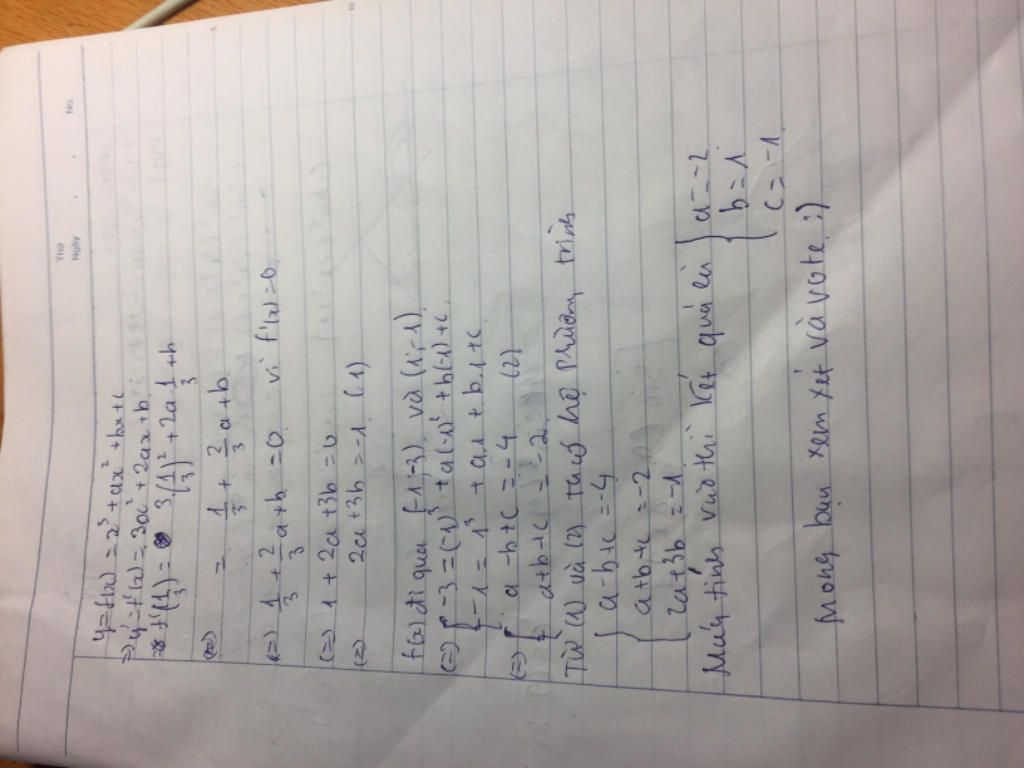 Thứ
Ngày
No.
y=f(x) = x³ + ax² + bx + c
=> y' = f'(x) = 3x² + 2ax + b
f'(1/3) = 3(1/3)² + 2a 1/3 + b
(=) = 1/3 + 2/3 a + b
(=) 1/3 + 2/3 a + b = 0 vì f'(x) = 0
(=) 1 + 2a + 3b = 0
(=) 2a + 3b = -1 (1)
f(x) đi qua (-1;-3) và (1;-1)
(=) { -3 = (-1)³ + a(-1)² + b(-1) + c
-1 = 1³ + a.1 + b.1 + c
(=) { a - b + c = -4 (2)
a + b + c = -2
Từ (1) và (2) ta có hệ phương trình
{ a - b + c = -4
a + b + c = -2
2a + 3b = -1
Máy tính vào thì kết quả ra { a = -2
b = 1
c = -1
mong bạn xem xét và vote :)